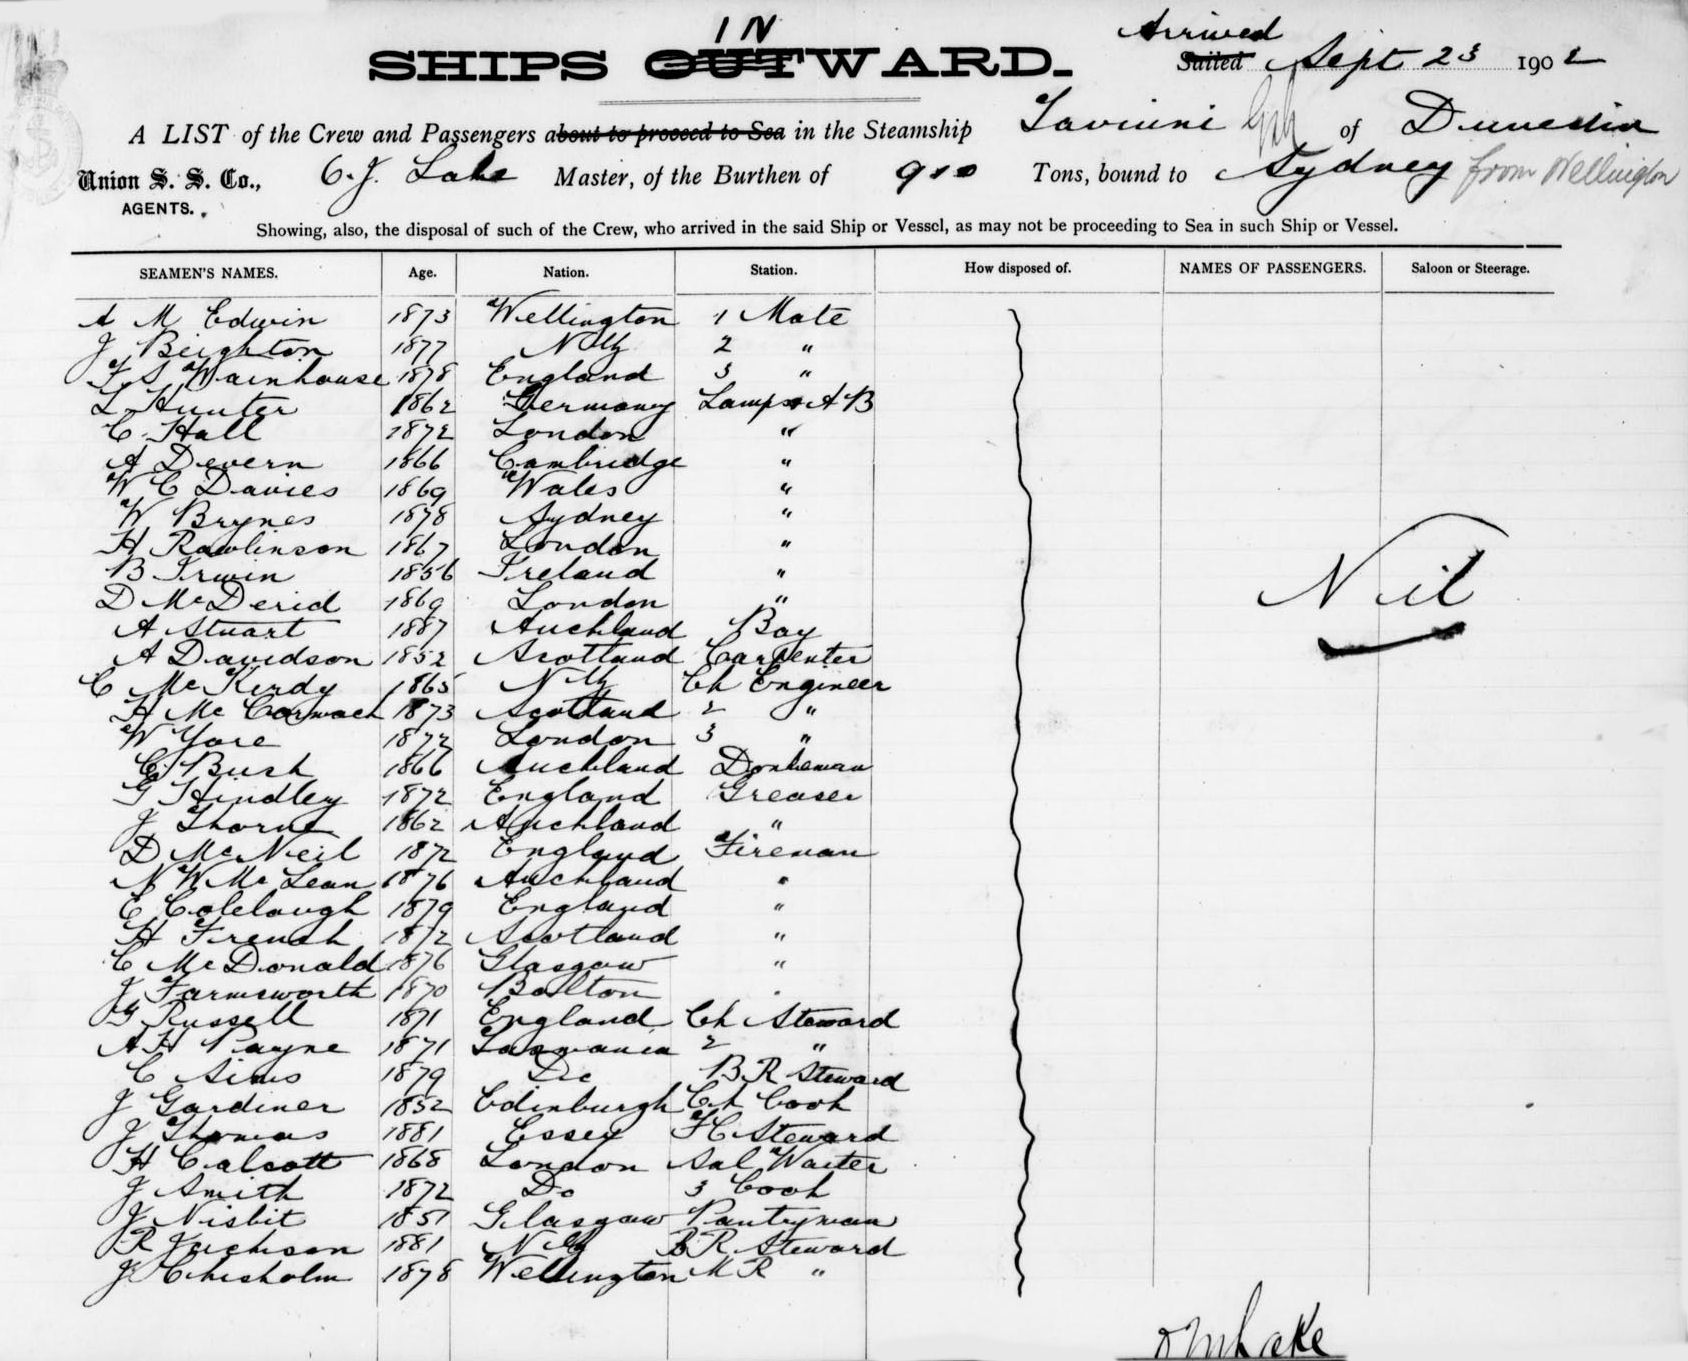 IN Arrived
SHIPS OUTWARD. Sailed Sept 23 1902
A LIST of the Crew and Passengers about to proceed to Sea in the Steamship Taviuni of Dunedin
Union S. S. Co., C. J. Lake Master, of the Burthen of 910 Tons, bound to Sydney from Wellington
AGENTS.
Showing, also, the disposal of such of the Crew, who arrived in the said Ship or Vessel, as may not be proceeding to Sea in such Ship or Vessel.
SEAMEN'S NAMES. Age. Nation. Station. How disposed of. NAMES OF PASSENGERS. Saloon or Steerage.
A M Edwin 1873 Wellington 1 Mate
J Beighton 1877 NZ 2 "
F S Wainhouse 1878 England 3 "
L Hunter 1862 Germany Lamps & A B
C Hall 1872 London "
A Devern 1866 Cambridge "
W C Davies 1869 Wales "
W Brynes 1878 Sydney "
H Rawlinson 1867 London "
B Irwin 1856 Ireland "
D McDerid 1869 London "
A Stuart 1887 Auckland Boy
A Davidson 1852 Scotland Carpenter
C McKirdy 1865 NZ Ch Engineer
H McCormack 1873 Scotland 2 "
W Yore 1872 London 3 "
C Bush 1866 Auckland Donkeman
G Hindley 1872 England Greaser
J Thorne 1862 Auckland "
D McNeil 1872 England Fireman
N W McLean 1876 Auckland "
E Colclough 1879 England "
H French 1872 Scotland "
C McDonald 1876 Glasgow "
J Farmsworth 1870 Bolton "
G Russell 1871 England Ch Steward
A H Payne 1871 Tasmania 2 "
C Sims 1879 Do B R Steward
J Gardiner 1852 Edinburgh Ch Cook
J Thomas 1881 Essex F C Steward
H Calcott 1868 London Sal Waiter
J Smith 1872 Do 3 Cook
J Nisbit 1851 Glasgow Pantryman
R Jackson 1881 NZ B R Steward
J Chisholm 1878 Wellington M R "
Nil